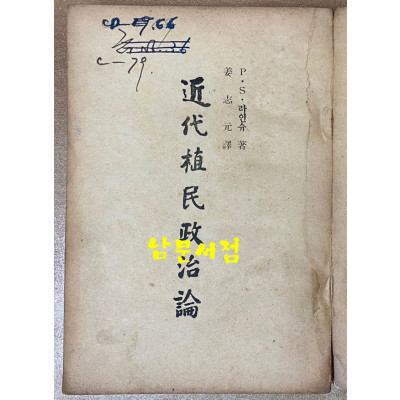 P·S·라인슈 著
姜志元 譯
近代植民政治論
남문서점
c-79.